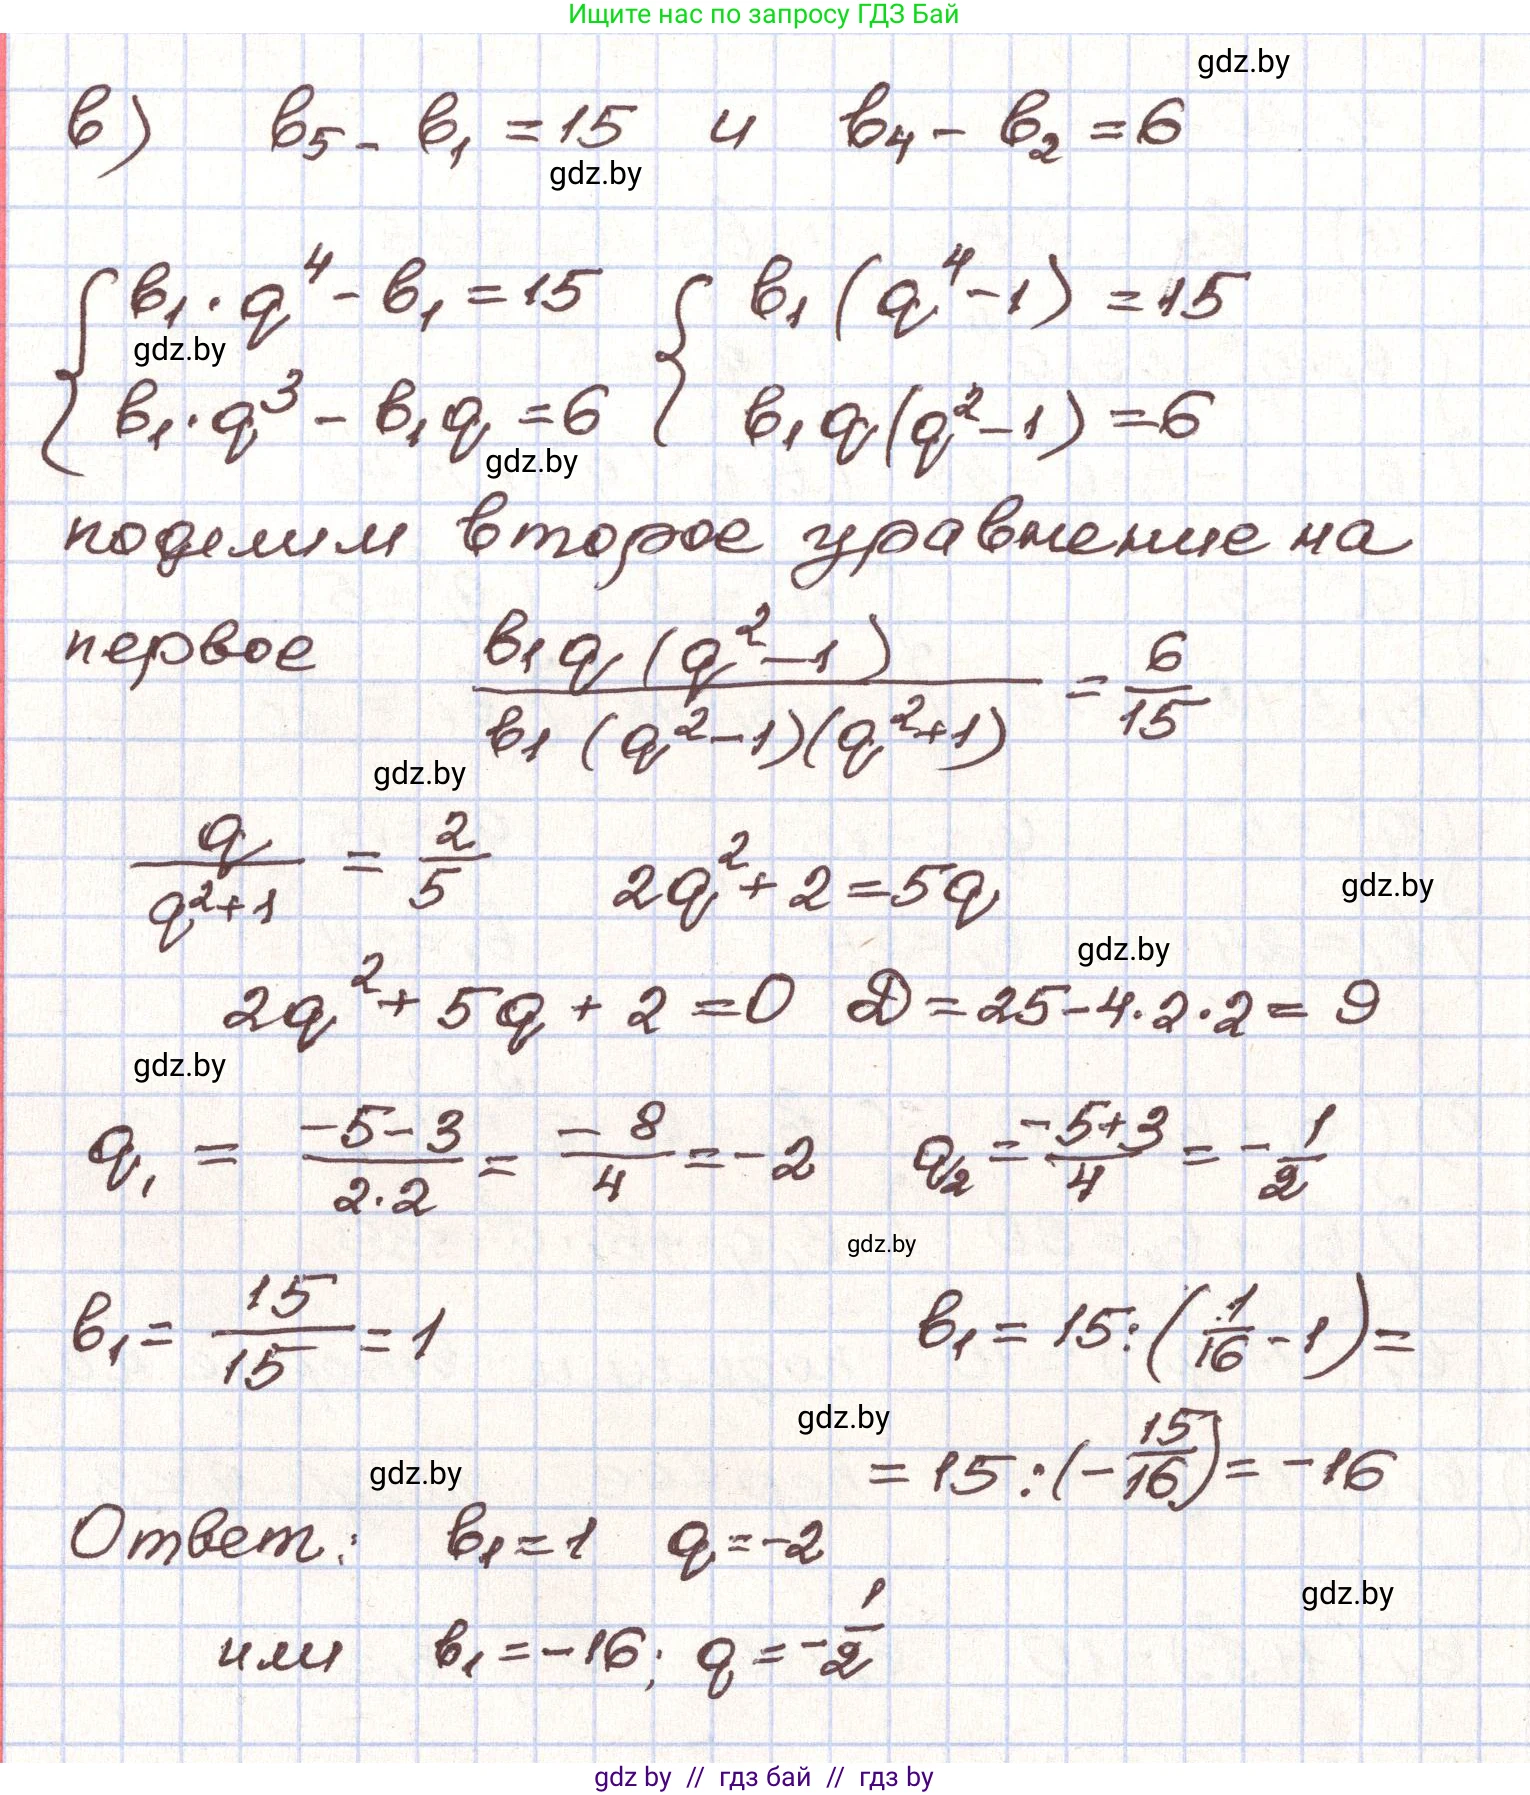 Ищите нас по запросу ГДЗ Бай
gdz.by
в) b₅ - b₁ = 15 и b₄ - b₂ = 6
gdz.by
{ b₁ · q⁴ - b₁ = 15 { b₁ (q⁴ - 1) = 15
gdz.by
b₁ · q³ - b₁q = 6 b₁q (q² - 1) = 6
gdz.by
поделим второе уравнение на
первое b₁q (q² - 1) / b₁ (q² - 1)(q² + 1) = 6/15
gdz.by
q / q² + 1 = 2/5 2q² + 2 = 5q
gdz.by
gdz.by
2q² + 5q + 2 = 0 D = 25 - 4 · 2 · 2 = 9
gdz.by
q₁ = -5 - 3 / 2 · 2 = -8/4 = -2 q₂ = -5 + 3 / 4 = -1/2
gdz.by
b₁ = 15/15 = 1 b₁ = 15 : (1/16 - 1) =
gdz.by
= 15 : (-15/16) = -16
gdz.by
Ответ: b₁ = 1 q = -2
gdz.by
или b₁ = -16; q = -1/2
gdz by // гдз бай // гдз by